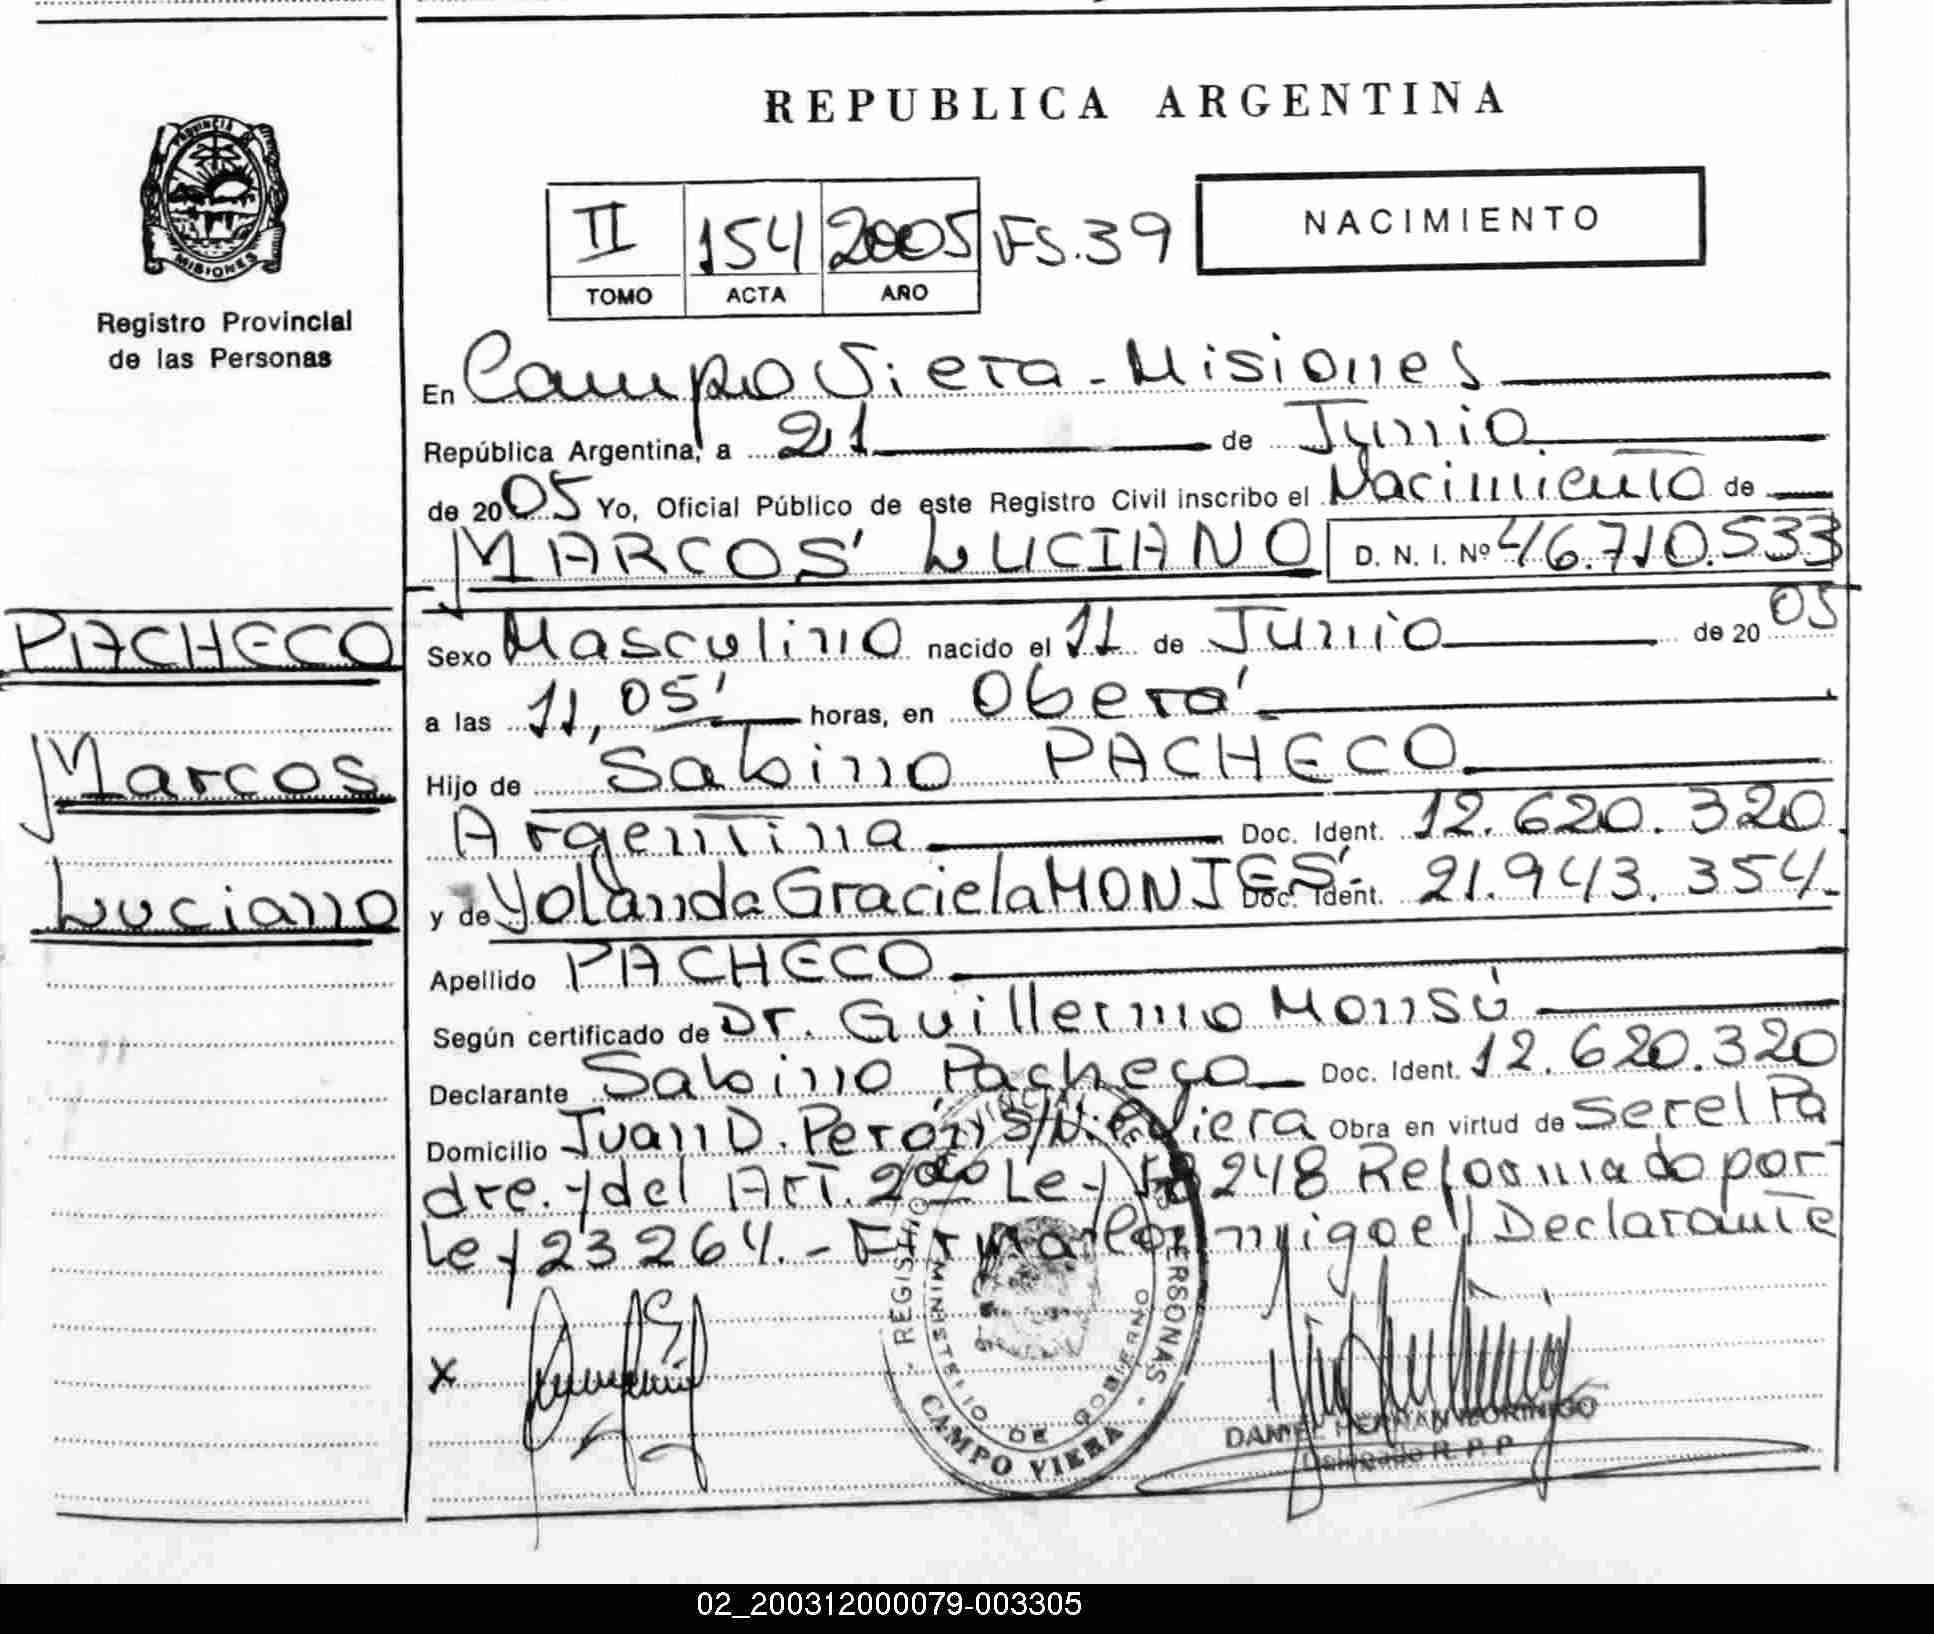 REPUBLICA ARGENTINA
PROVINCIA DE
MISIONES
Registro Provincial
de las Personas
II 154 2005 FS.39
TOMO ACTA AÑO
NACIMIENTO
En Campo Viera - Misiones
República Argentina, a 21 de Junio
de 2005 Yo, Oficial Público de este Registro Civil inscribo el Nacimiento de
MARCOS LUCIANO D. N. I. Nº 46.710.533
PACHECO
Marcos
Luciano
Sexo Masculino nacido el 11 de Junio de 20 05
a las 11,05' horas, en Oberá
Hijo de Sabino PACHECO
Argentina Doc. Ident. 12.620.320.
y de Yolanda Graciela MONJES.- Doc. Ident. 21.943.354.-
Apellido PACHECO
Según certificado de Dr. Guillermo Monsú
Declarante Sabino Pacheco Doc. Ident. 12.620.320
Domicilio Juan D. Perón s/N. Viera Obra en virtud de ser el Pa
dre.- y del Art. 2do Ley 18248 Reformado por
Ley 23264.- Firma Conmigo el Declarante
X
REGISTRO PROVINCIAL DE PERSONAS
MINISTERIO DE GOBIERNO
CAMPO VIERA
DANIEL HERNAN BORINIGO
Delegado R. P. P
02_200312000079-003305